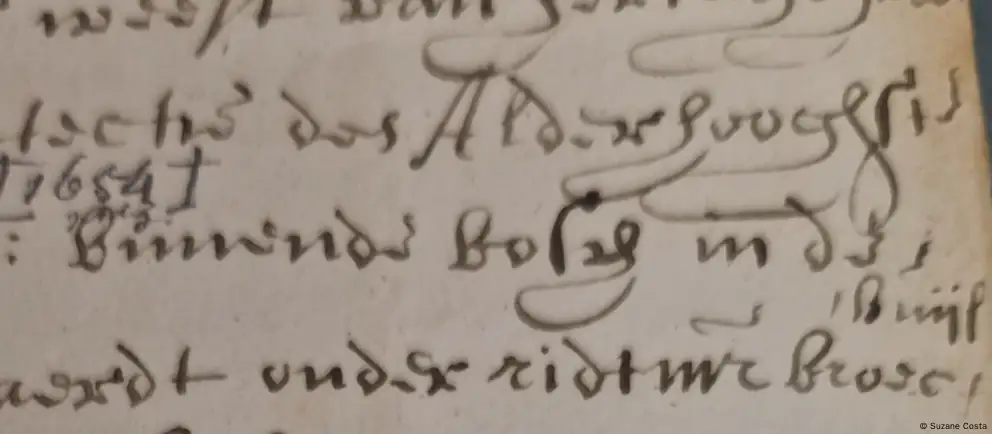 weest van
rechte des Alderhooghste
[1654]
: Binnende Bosch in de,
waerdt onder ridtmr broec,
© Suzane Costa